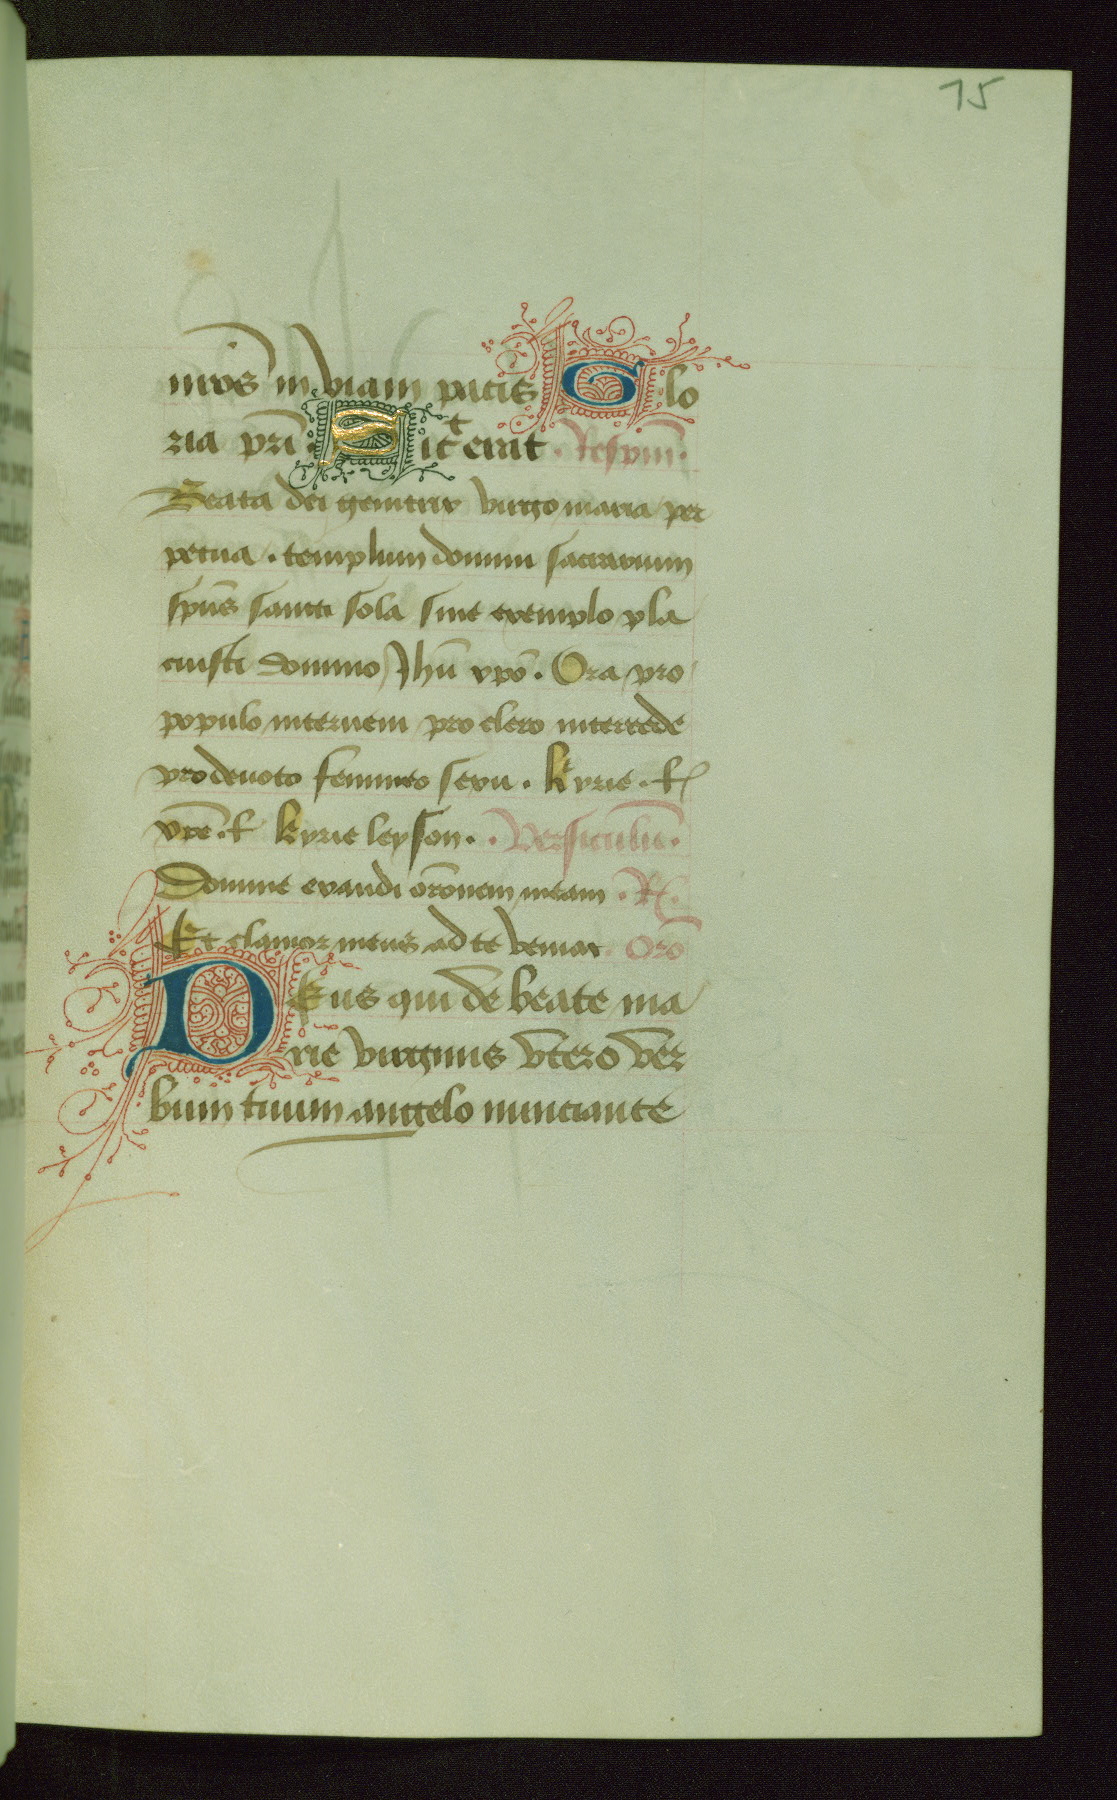 15
nr̄os in viam pacis Glo
ria pr̄i Sic̄t erat . Respūm.
Beata dei genitrix virgo maria per
petua . templum domini sacrarium
sp̄us sancti sola sine exemplo pla
cuisti domino Jhū xp̄o . Ora pro
populo interueni pro clero intercede
pro deuoto femineo sexu . kyrie .
xp̄e . kyrieleyson . Versiculū .
Domine exaudi or̄onem meam .
Et clamor meus ad te veniat . Orō
Deus qui de beate ma
rie virginis vtero ver
bum tuum angelo nunciante